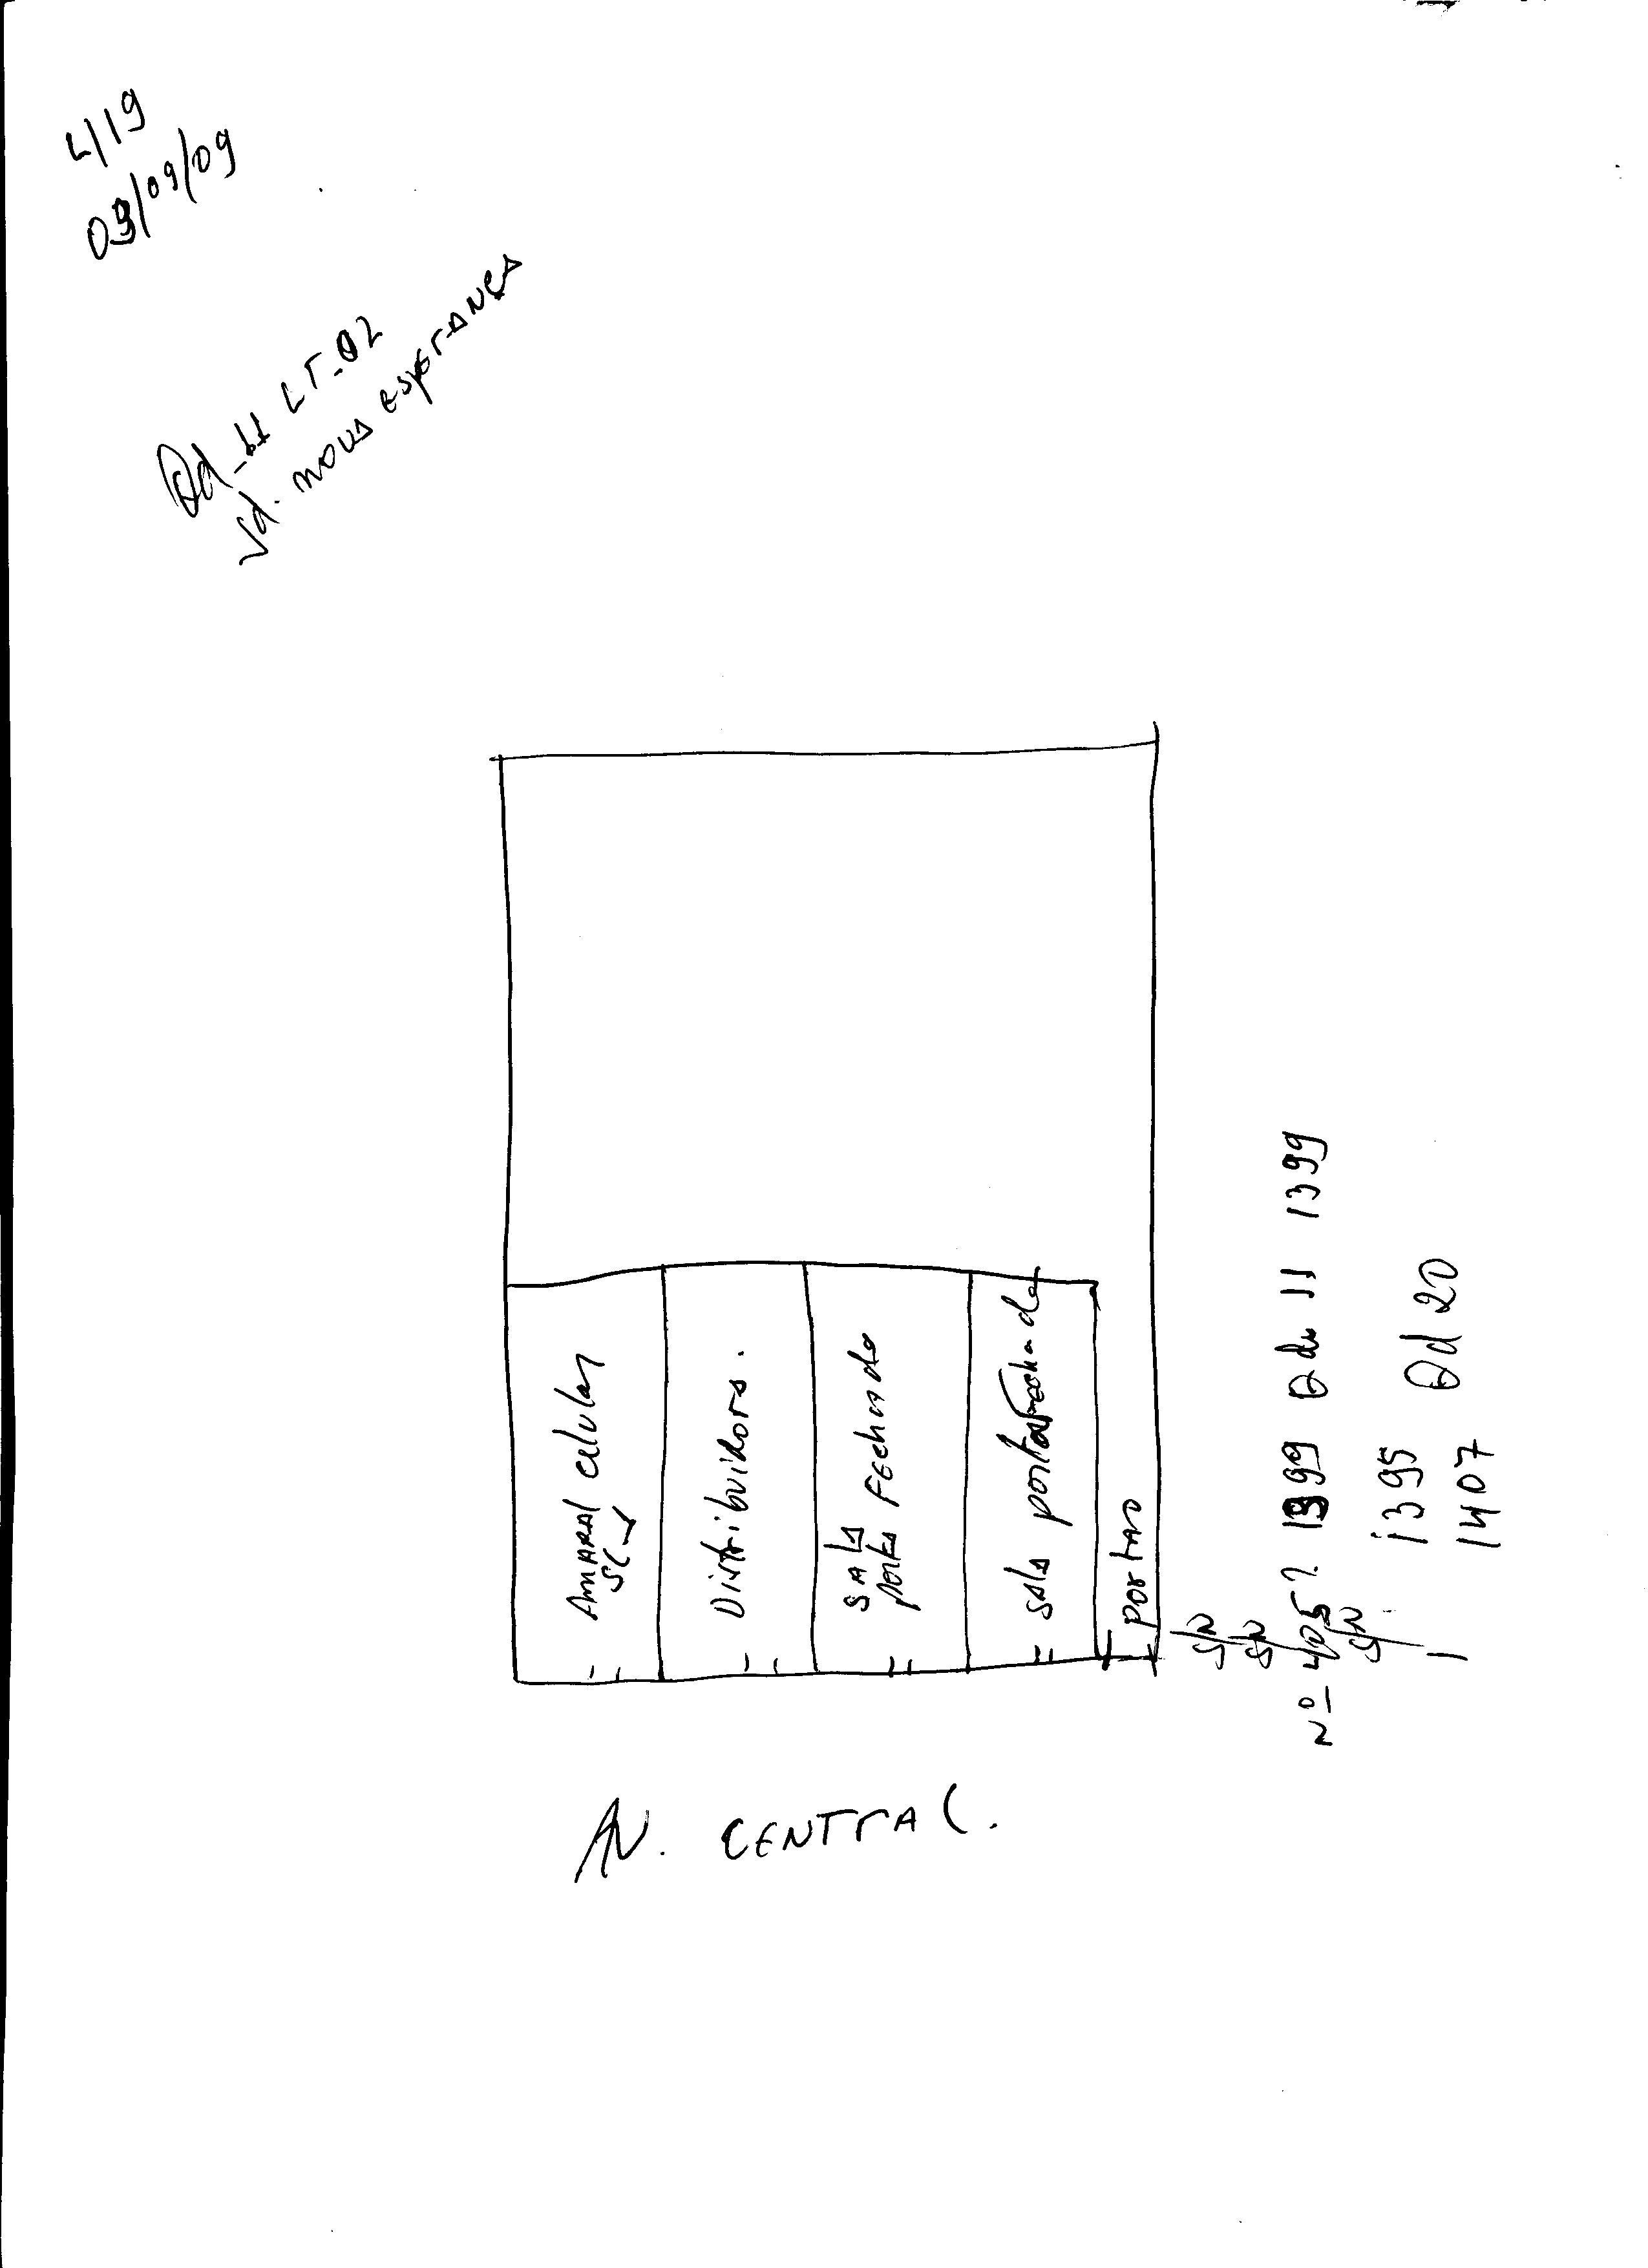 L/19
09/09/09
Qd_11 LT_02
Jd. nova esperança
Amaral celular
Distribuidora.
SALA
porta Fechada
sala porta Fechada
portao
S/N
S/N
Nº 1399 Qd 11 1399
S/N 1395
1407
Qd 20
AV. CENTrAL.